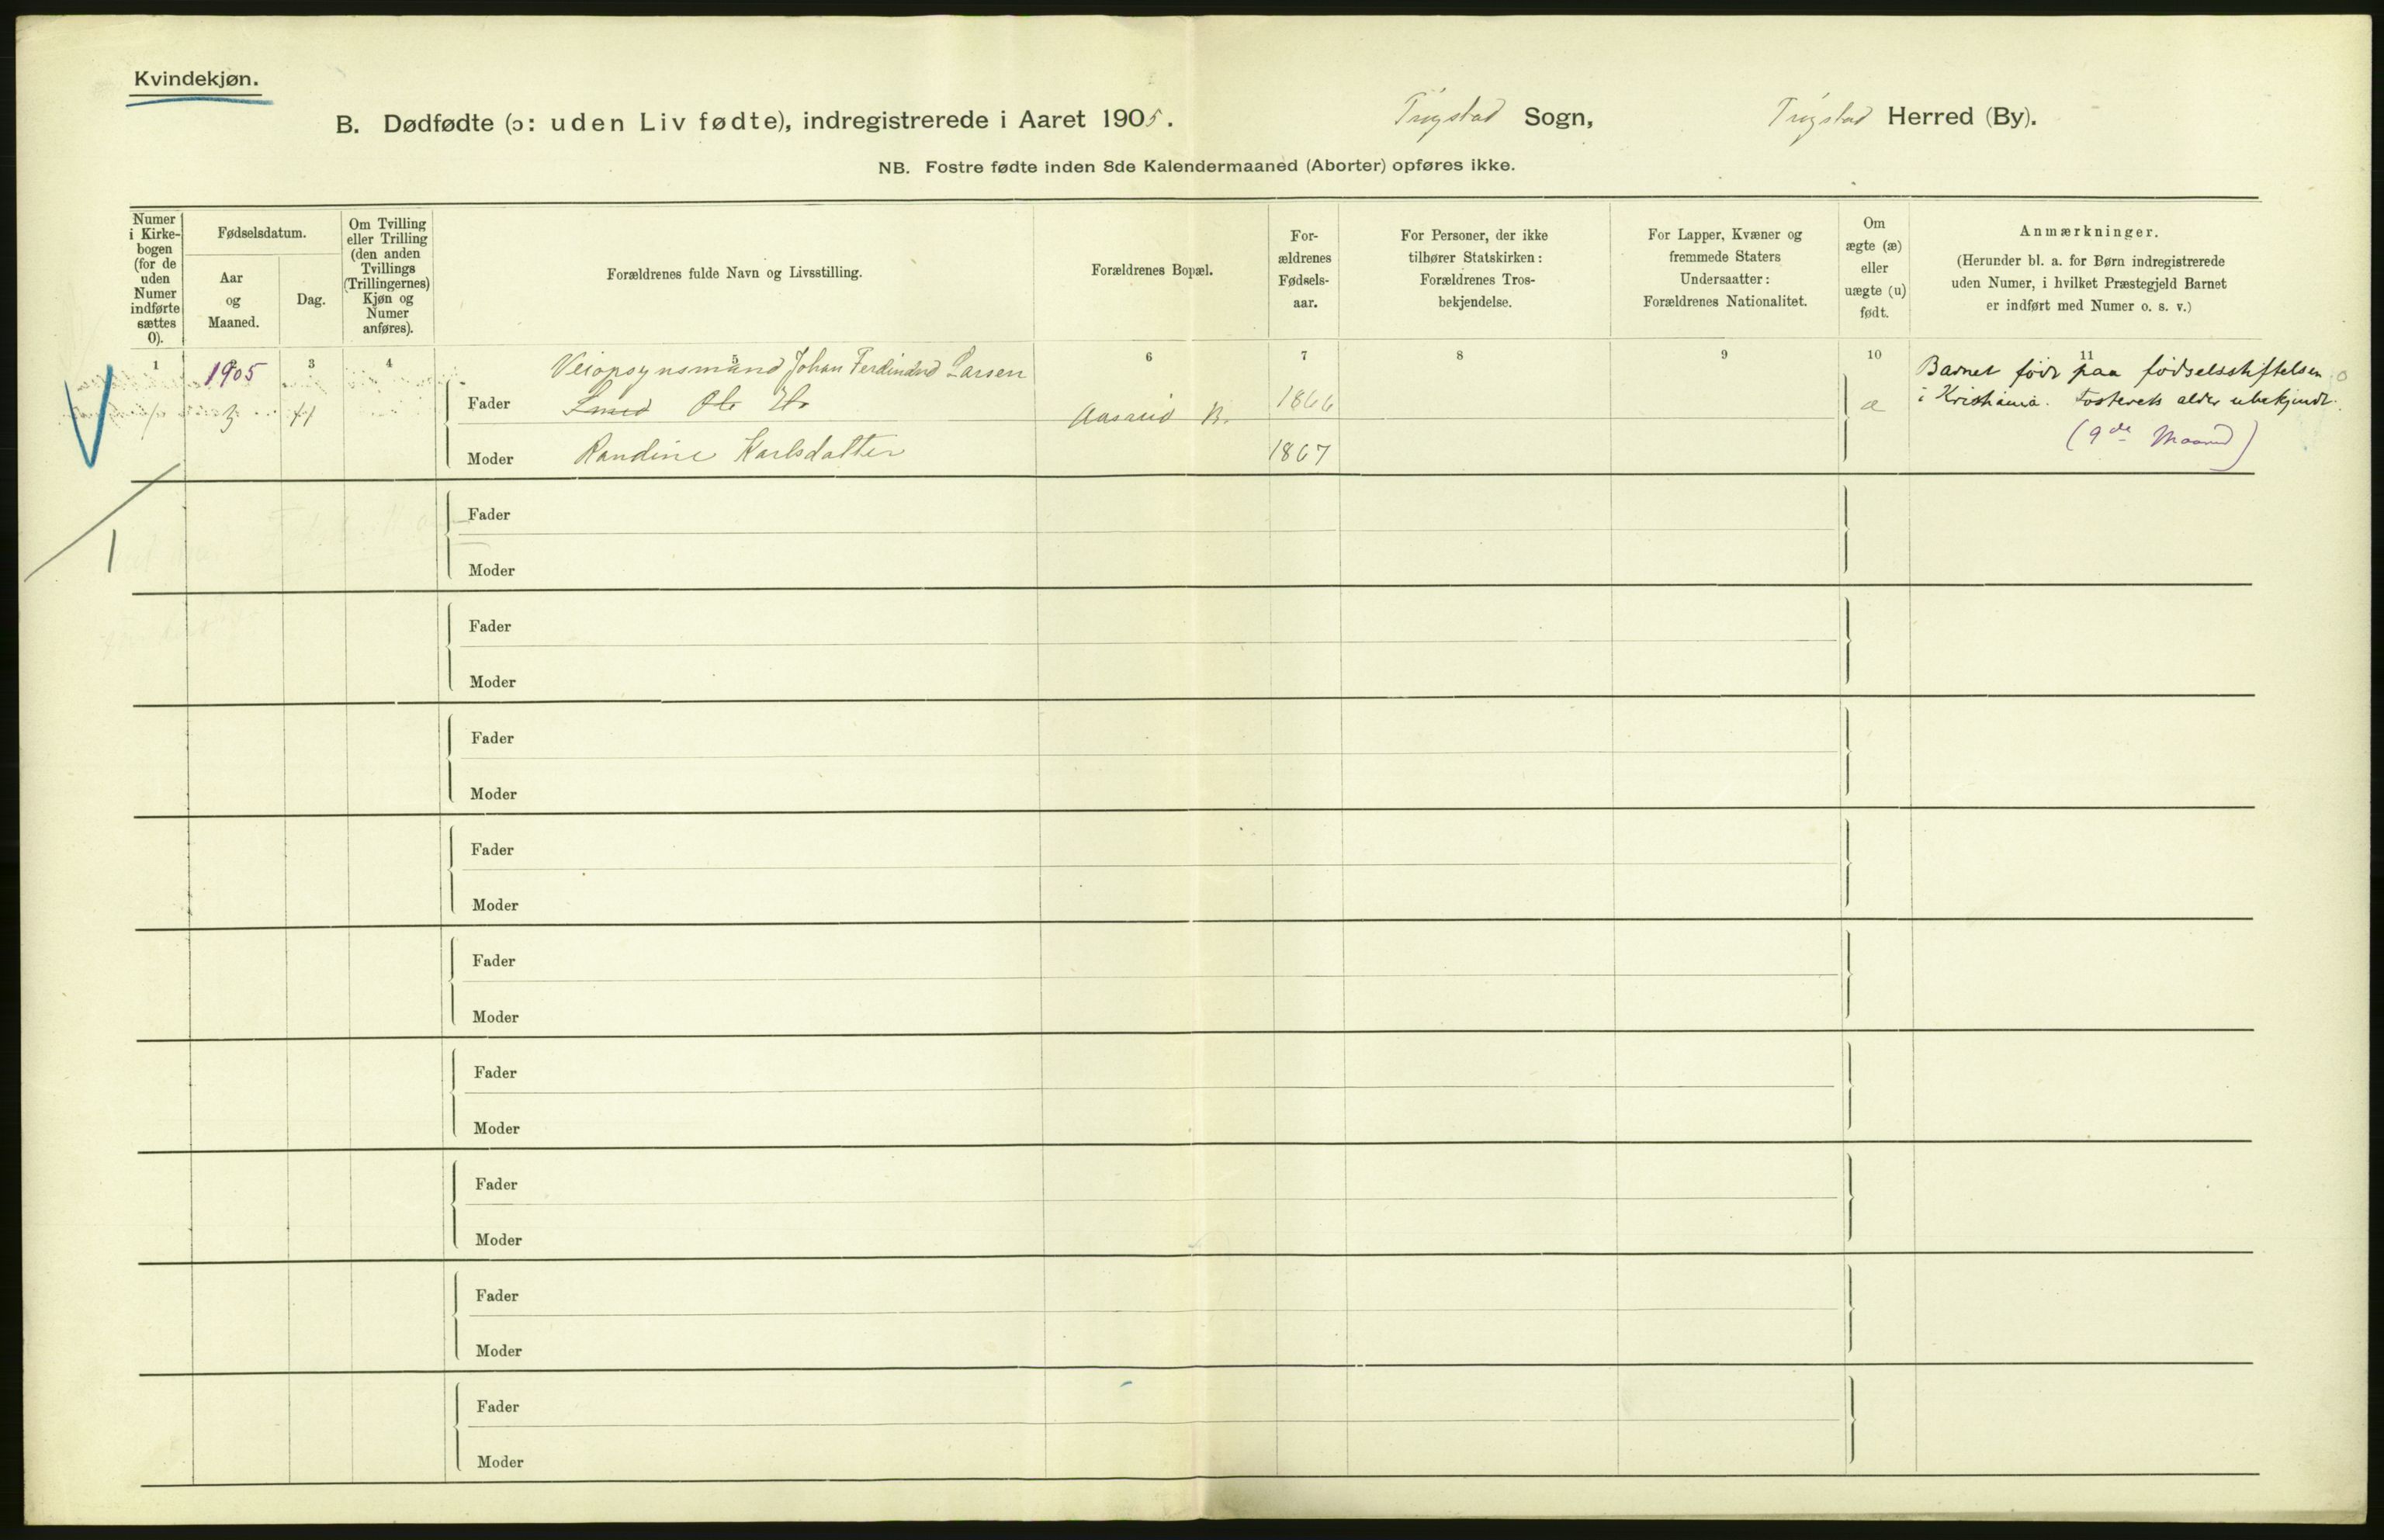 Kvindekjøn.
B. Dødfødte (ɔ: uden Liv fødte), indregistrerede i Aaret 1905. Trygstad Sogn, Trygstad Herred (By).
NB. Fostre fødte inden 8de Kalendermaaned (Aborter) opføres ikke.
Numer
i Kirke-
bogen
(for de
uden
Numer
indførte
sættes
0).
Fødselsdatum.
Aar
og
Maaned.
Dag.
Om Tvilling
eller Trilling
(den anden
Tvillings
(Trillingernes)
Kjøn og
Numer
anføres).
Forældrenes fulde Navn og Livsstilling.
Forældrenes Bopæl.
For-
ældrenes
Fødsels-
aar.
For Personer, der ikke
tilhører Statskirken:
Forældrenes Tros-
bekjendelse.
For Lapper, Kvæner og
fremmede Staters
Undersaatter:
Forældrenes Nationalitet.
Om
ægte (æ)
eller
uægte (u)
født.
Anmærkninger.
(Herunder bl. a. for Børn indregistrerede
uden Numer, i hvilket Præstegjeld Barnet
er indført med Numer o. s. v.)
1 3 4 5 6 7 8 9 10 11
1905
1 3 11
Veiopsynsmand Johan Ferdinand Larsen
Fader Smed Ole 1866
Aasrud
Moder Randine Karlsdatter 1867
æ
Barnet født paa fødselsstiftelsen
i Kristiania. Fosterets alder ubekjendt.
(9de Maaned)
1
Fader
Moder
Fader
Moder
Fader
Moder
Fader
Moder
Fader
Moder
Fader
Moder
Fader
Moder
Fader
Moder
Fader
Moder